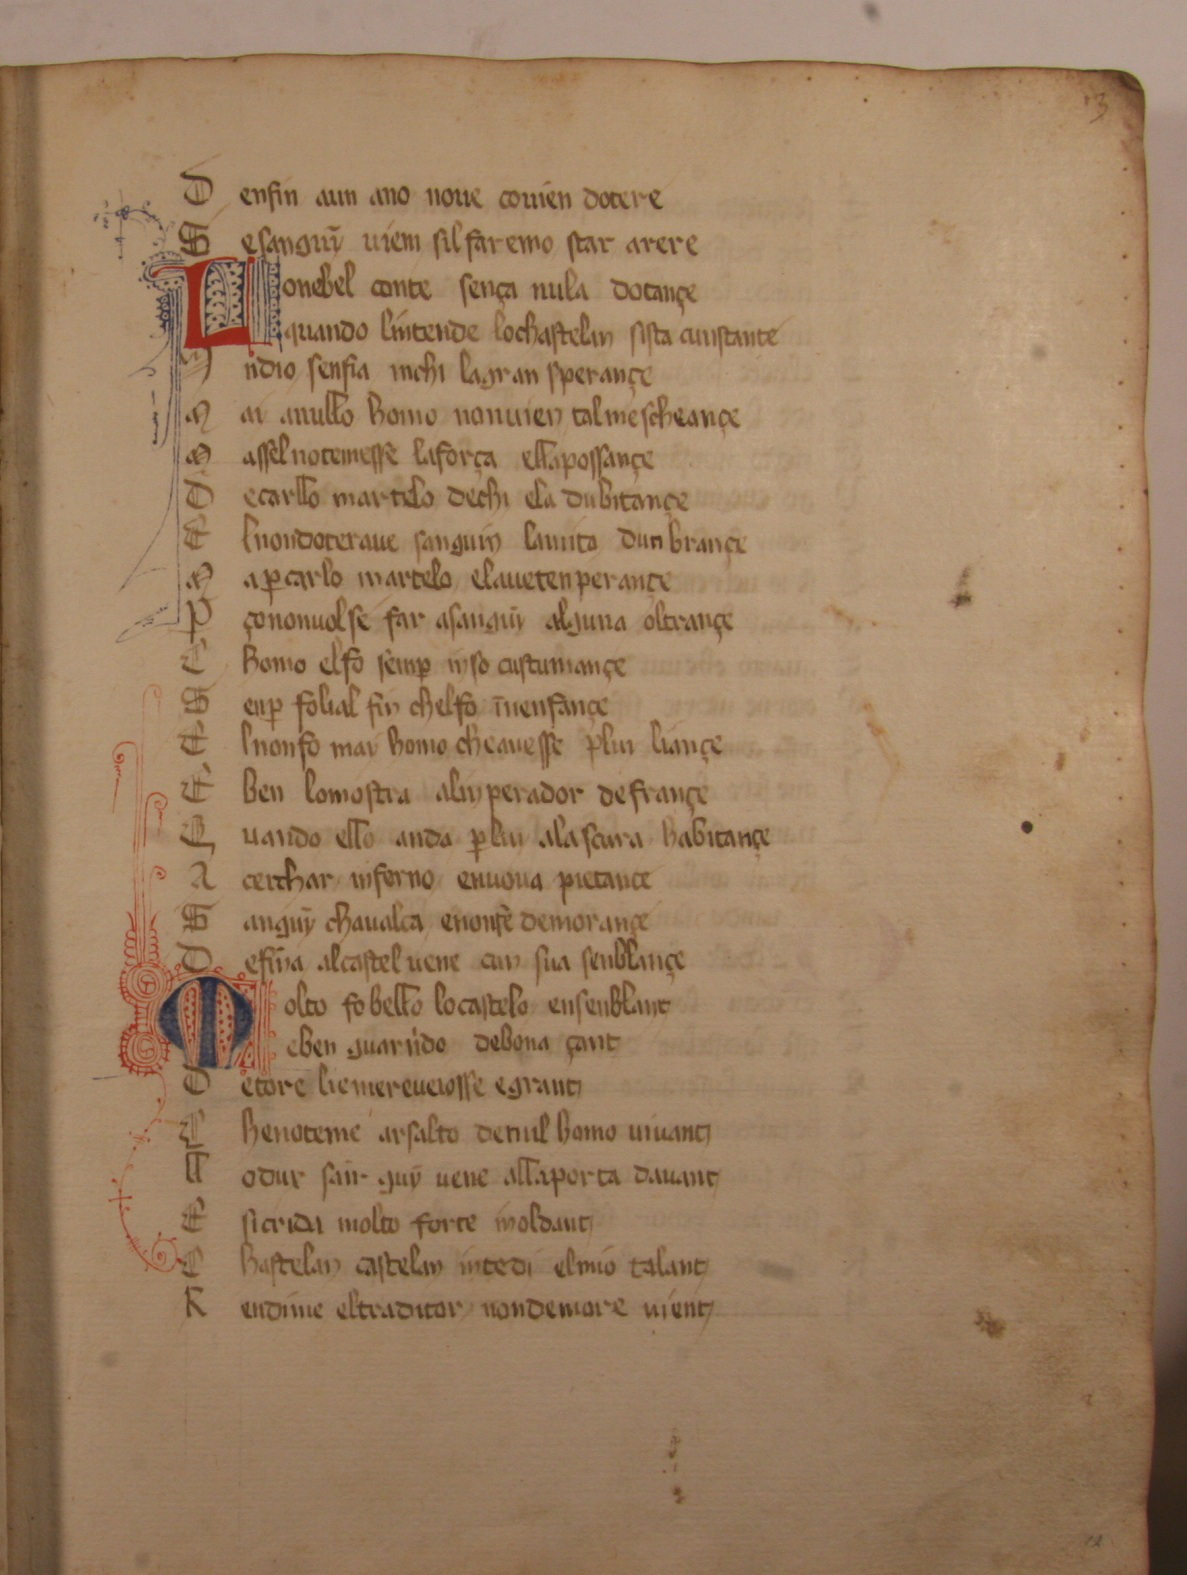 3
D enfin aun ano noue couien dotere
S esanguī uiem sil faremo star arere
L onebel conte sença nula dotançe
quando lintende lochastelan sista cunstante
I ndio senfia inchi lagran sperançe
M ai anullo homo nonuien talmescheançe
M assel notemesse laforça ellapossançe
D ecarllo martelo dechi ela dubitançe
E l nondoteraue sanguin lamita dun brançe
M a ꝑ carlo martelo elauetenperançe
P çononuolse far asanguī alguna oltrançe
C homo elfo semꝑ inso custumançe
S enꝑ folial fin chelfo īnenfançe
E l nonfo mai homo cheauesse ꝑlui liançe
E ben lomostra alinperador defrançe
Q uando ello anda ꝑ lui alascura habitançe
A cerchar inferno enuoua pietance
S anguȳ chaualca enonfe demorançe
D efina alcastel uene cun sua senblançe
M olto fo bello locastelo ensenblant
eben guarnido debona çant
D etore liemereueiosse egrant
C henoteme arsalto denul homo uiuant
U odur san guȳ uene allaporta dauant
E si crida molto forte inoldant
C hastelan castelan intedi elmio talant
R endime eltraditor nondemore nient
12